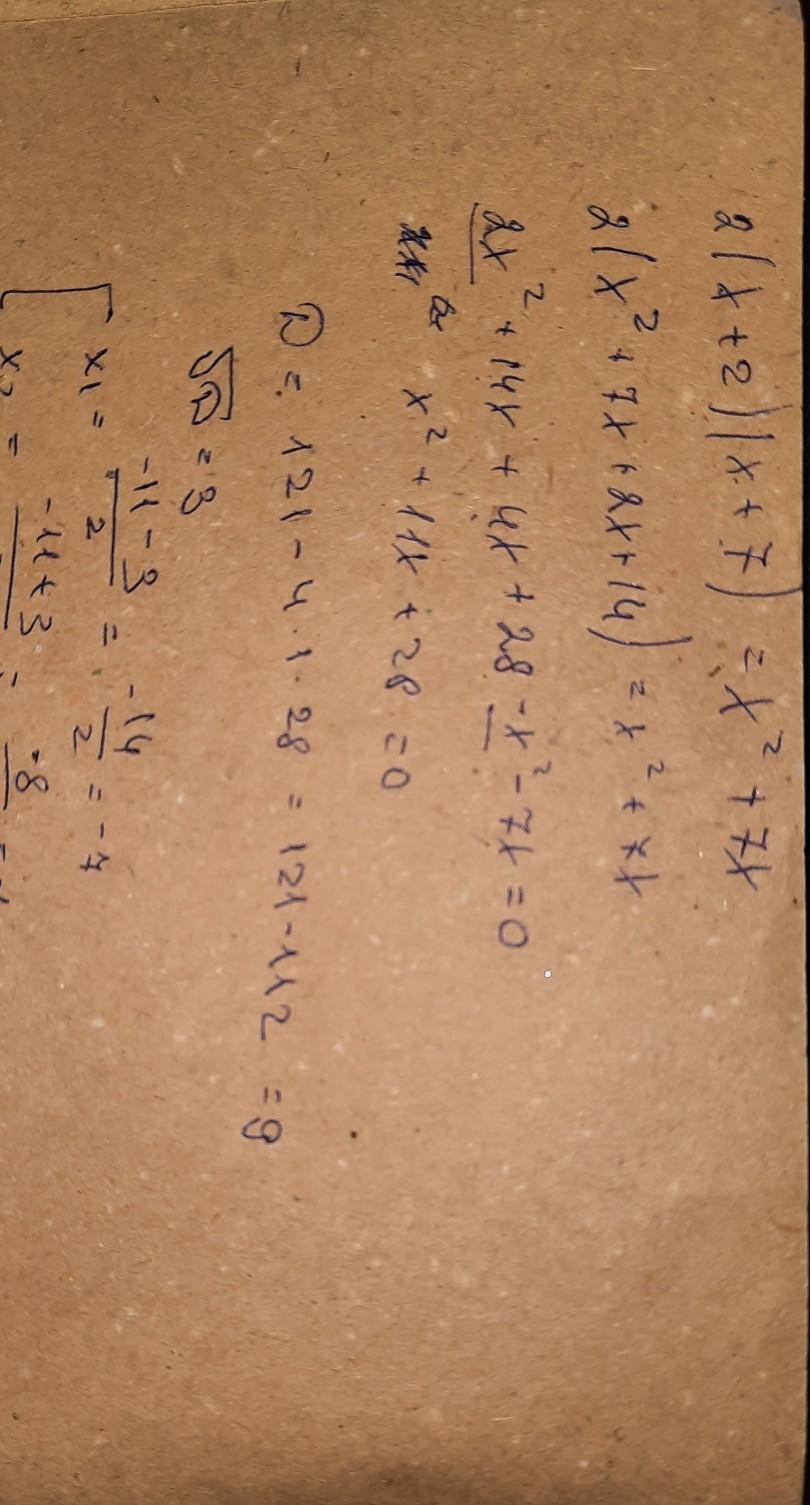 2(x+2)(x+7) = x² + 7x
2(x² + 7x + 2x + 14) = x² + 7x
2x² + 14x + 4x + 28 - x² - 7x = 0
x² + 11x + 28 = 0
D = 121 - 4 · 1 · 28 = 121 - 112 = 9
√D = 3
x1 = (-11 - 3)/2 = -14/2 = -7
x2 = -11 + 3 = -8